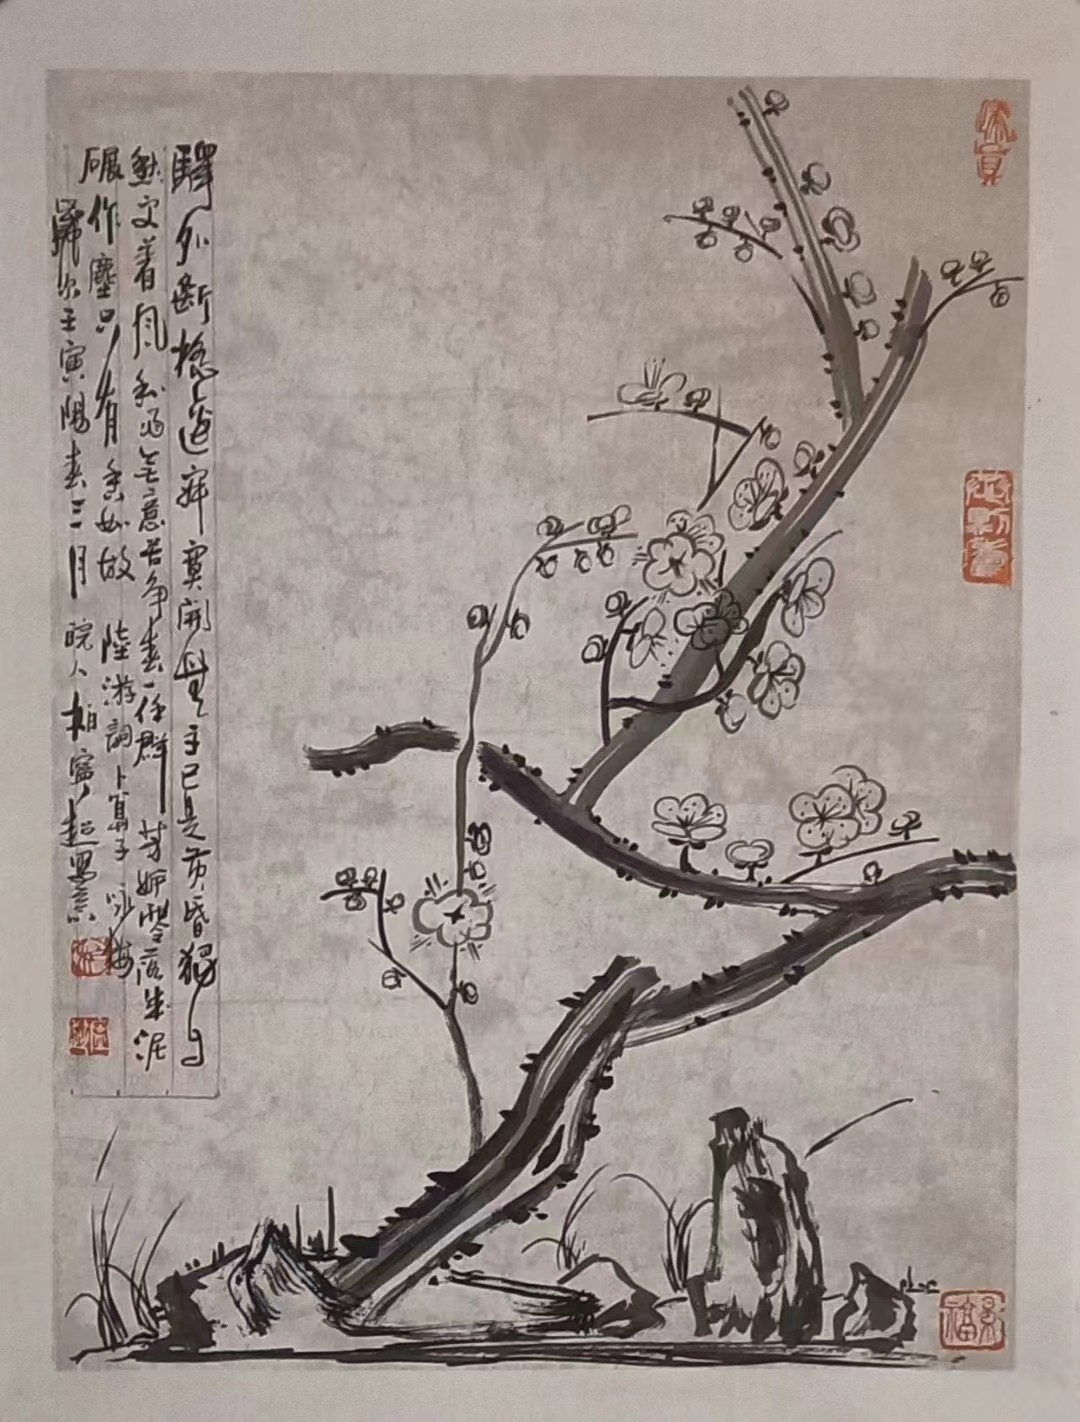 驛外斷橋邊寂寞開無主已是黄昏獨自
愁更着风和雨無意苦争春一任群芳妒零落成泥
碾作塵只有香如故 陸游詞卜算子咏梅
歲次壬寅陽春三月皖人柏寧超寫意
求真